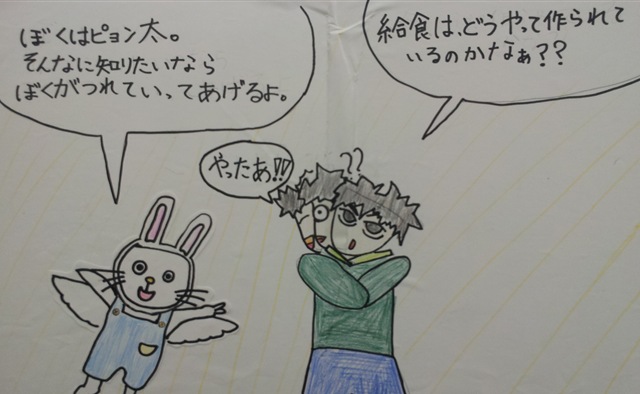 給食は、どうやって作られて
いるのかなぁ??
??
ぼくはピョン太。
そんなに知りたいなら
ぼくがつれていってあげるよ。
やったあ!!